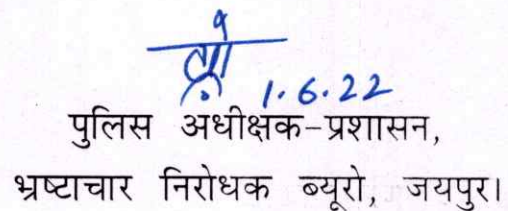 1.6.22
पुलिस अधीक्षक-प्रशासन,
भ्रष्टाचार निरोधक ब्यूरो, जयपुर।